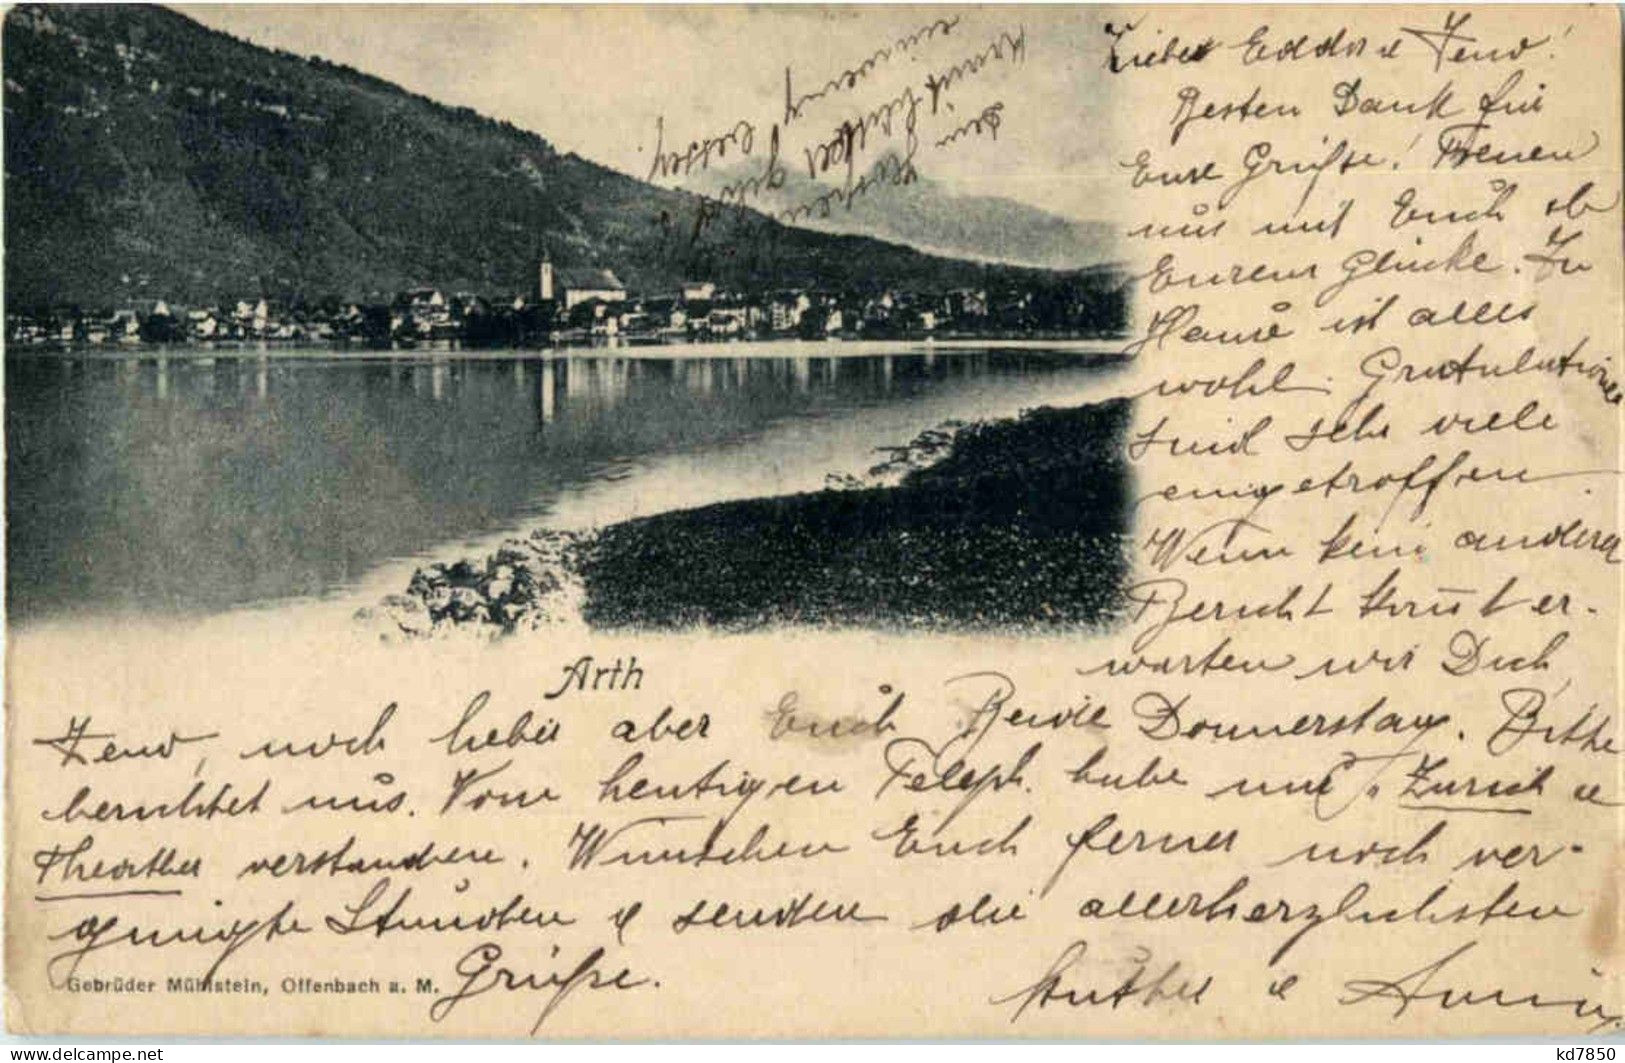 Besten Dank für
Eure Grüsse! Freuen
uns mit Euch ob
Eurem Glücke. Zu
Hause ist alles
wohl. Gratulationen
sind sehr viele
eingetroffen.
Wenn kein anderer
Bericht kommt er-
warten wir Dich,
Arth
Zeno, noch lieber aber Euch Beide Donnerstag. Bitte
berichtet uns. Vom heutigen Teleph. habe nur Zürich &
Theather verstanden. Wünschen Euch ferner noch ver-
gnügte Stunden & senden die allerherzlichsten
Grüsse.
Mutter &
Gebrüder Mühlstein, Offenbach a. M.
kd7850